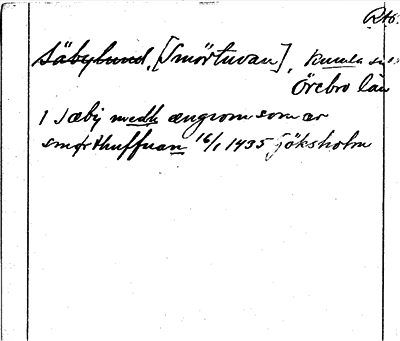 Rto.
Säbylund, [Smörtuvan], Kumla sn
Örebro län
1 Sæby medh ængiom som ær
smørthuffuan 16/1 1435 Göksholm